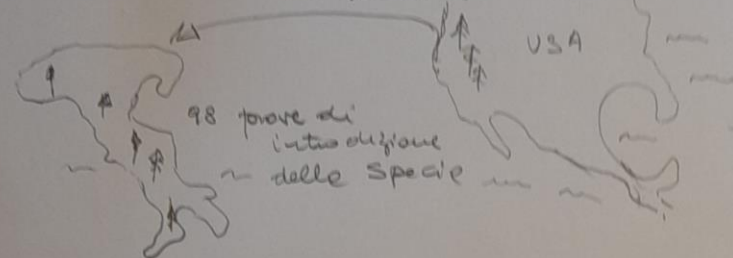 USA
98 prove di
introduzione
delle specie